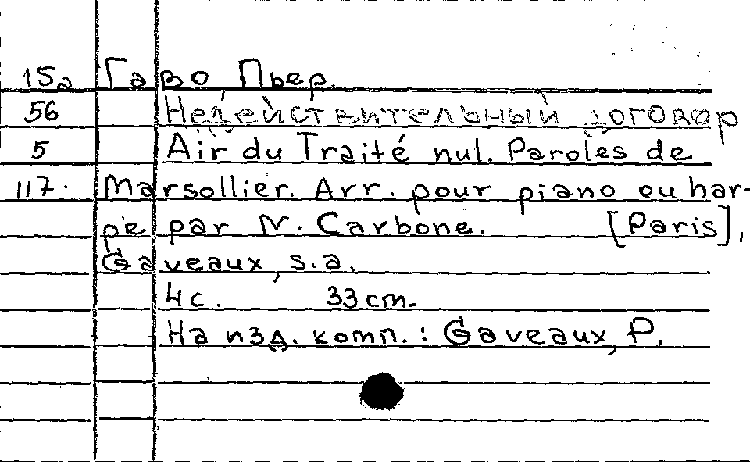 15a Гаво Пьер
56 Недействительный договор
5 Air du Traité nul. Paroles de
117. Marsollier. Arr. pour piano ou har-
pe par N. Carbone. [Paris],
Gaveaux, s.a.
4 с. 33 cm.
На изд. комп.: Gaveaux, P.